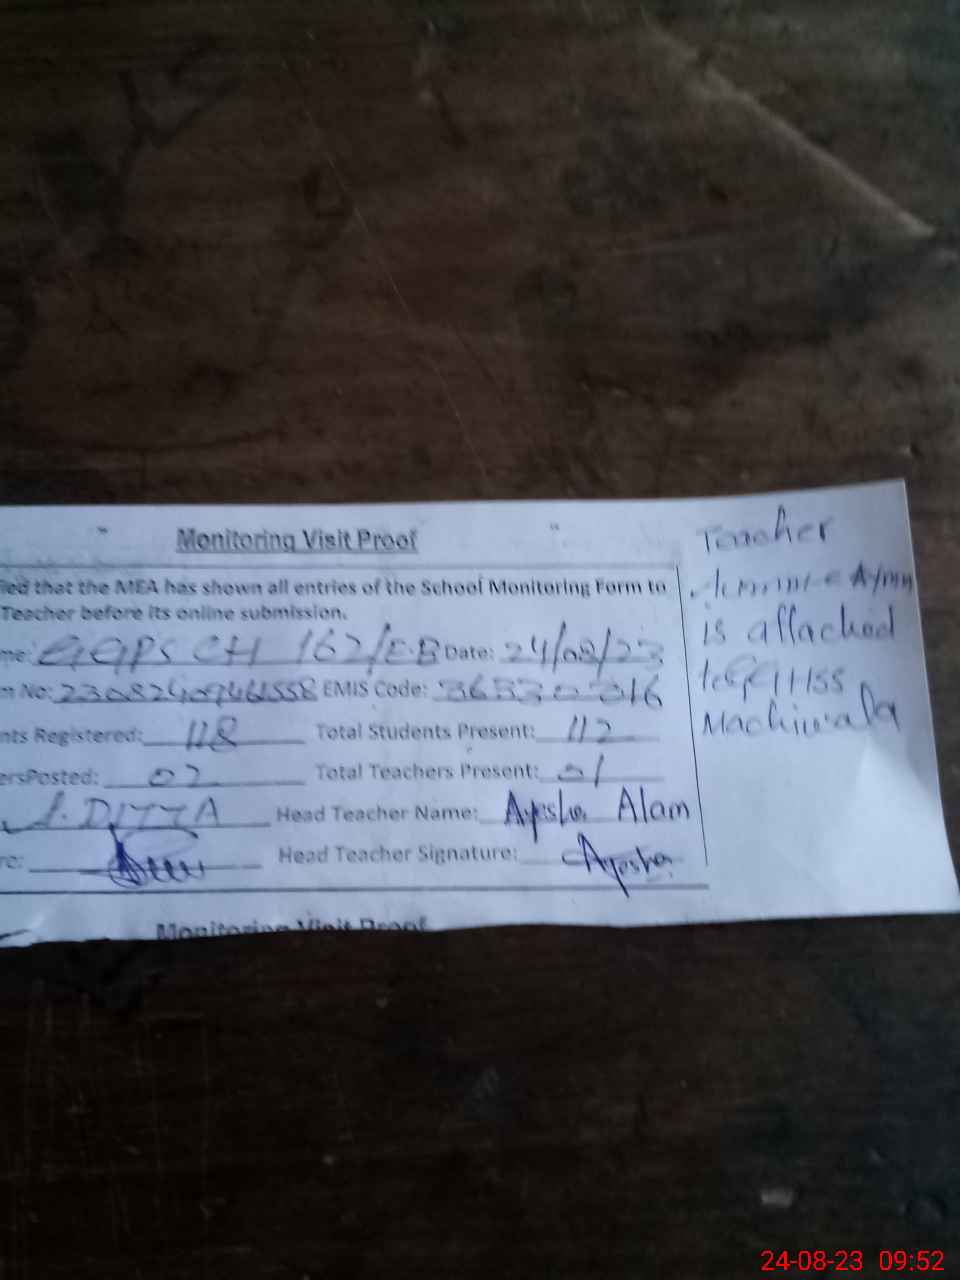 Monitoring Visit Proof
ied that the MEA has shown all entries of the School Monitoring Form to
Teacher before its online submission.
me: GGPS CH 162/E.B Date: 24/08/23
n No: EMIS Code:
nts Registered: 118 Total Students Present: 112
ersPosted: 02 Total Teachers Present: 01
DITTA Head Teacher Name: Ayesha Alam
re: Head Teacher Signature: Ayesha
Monitoring Visit Proof
Teacher
is attached
Machiwala
24-08-23 09:52